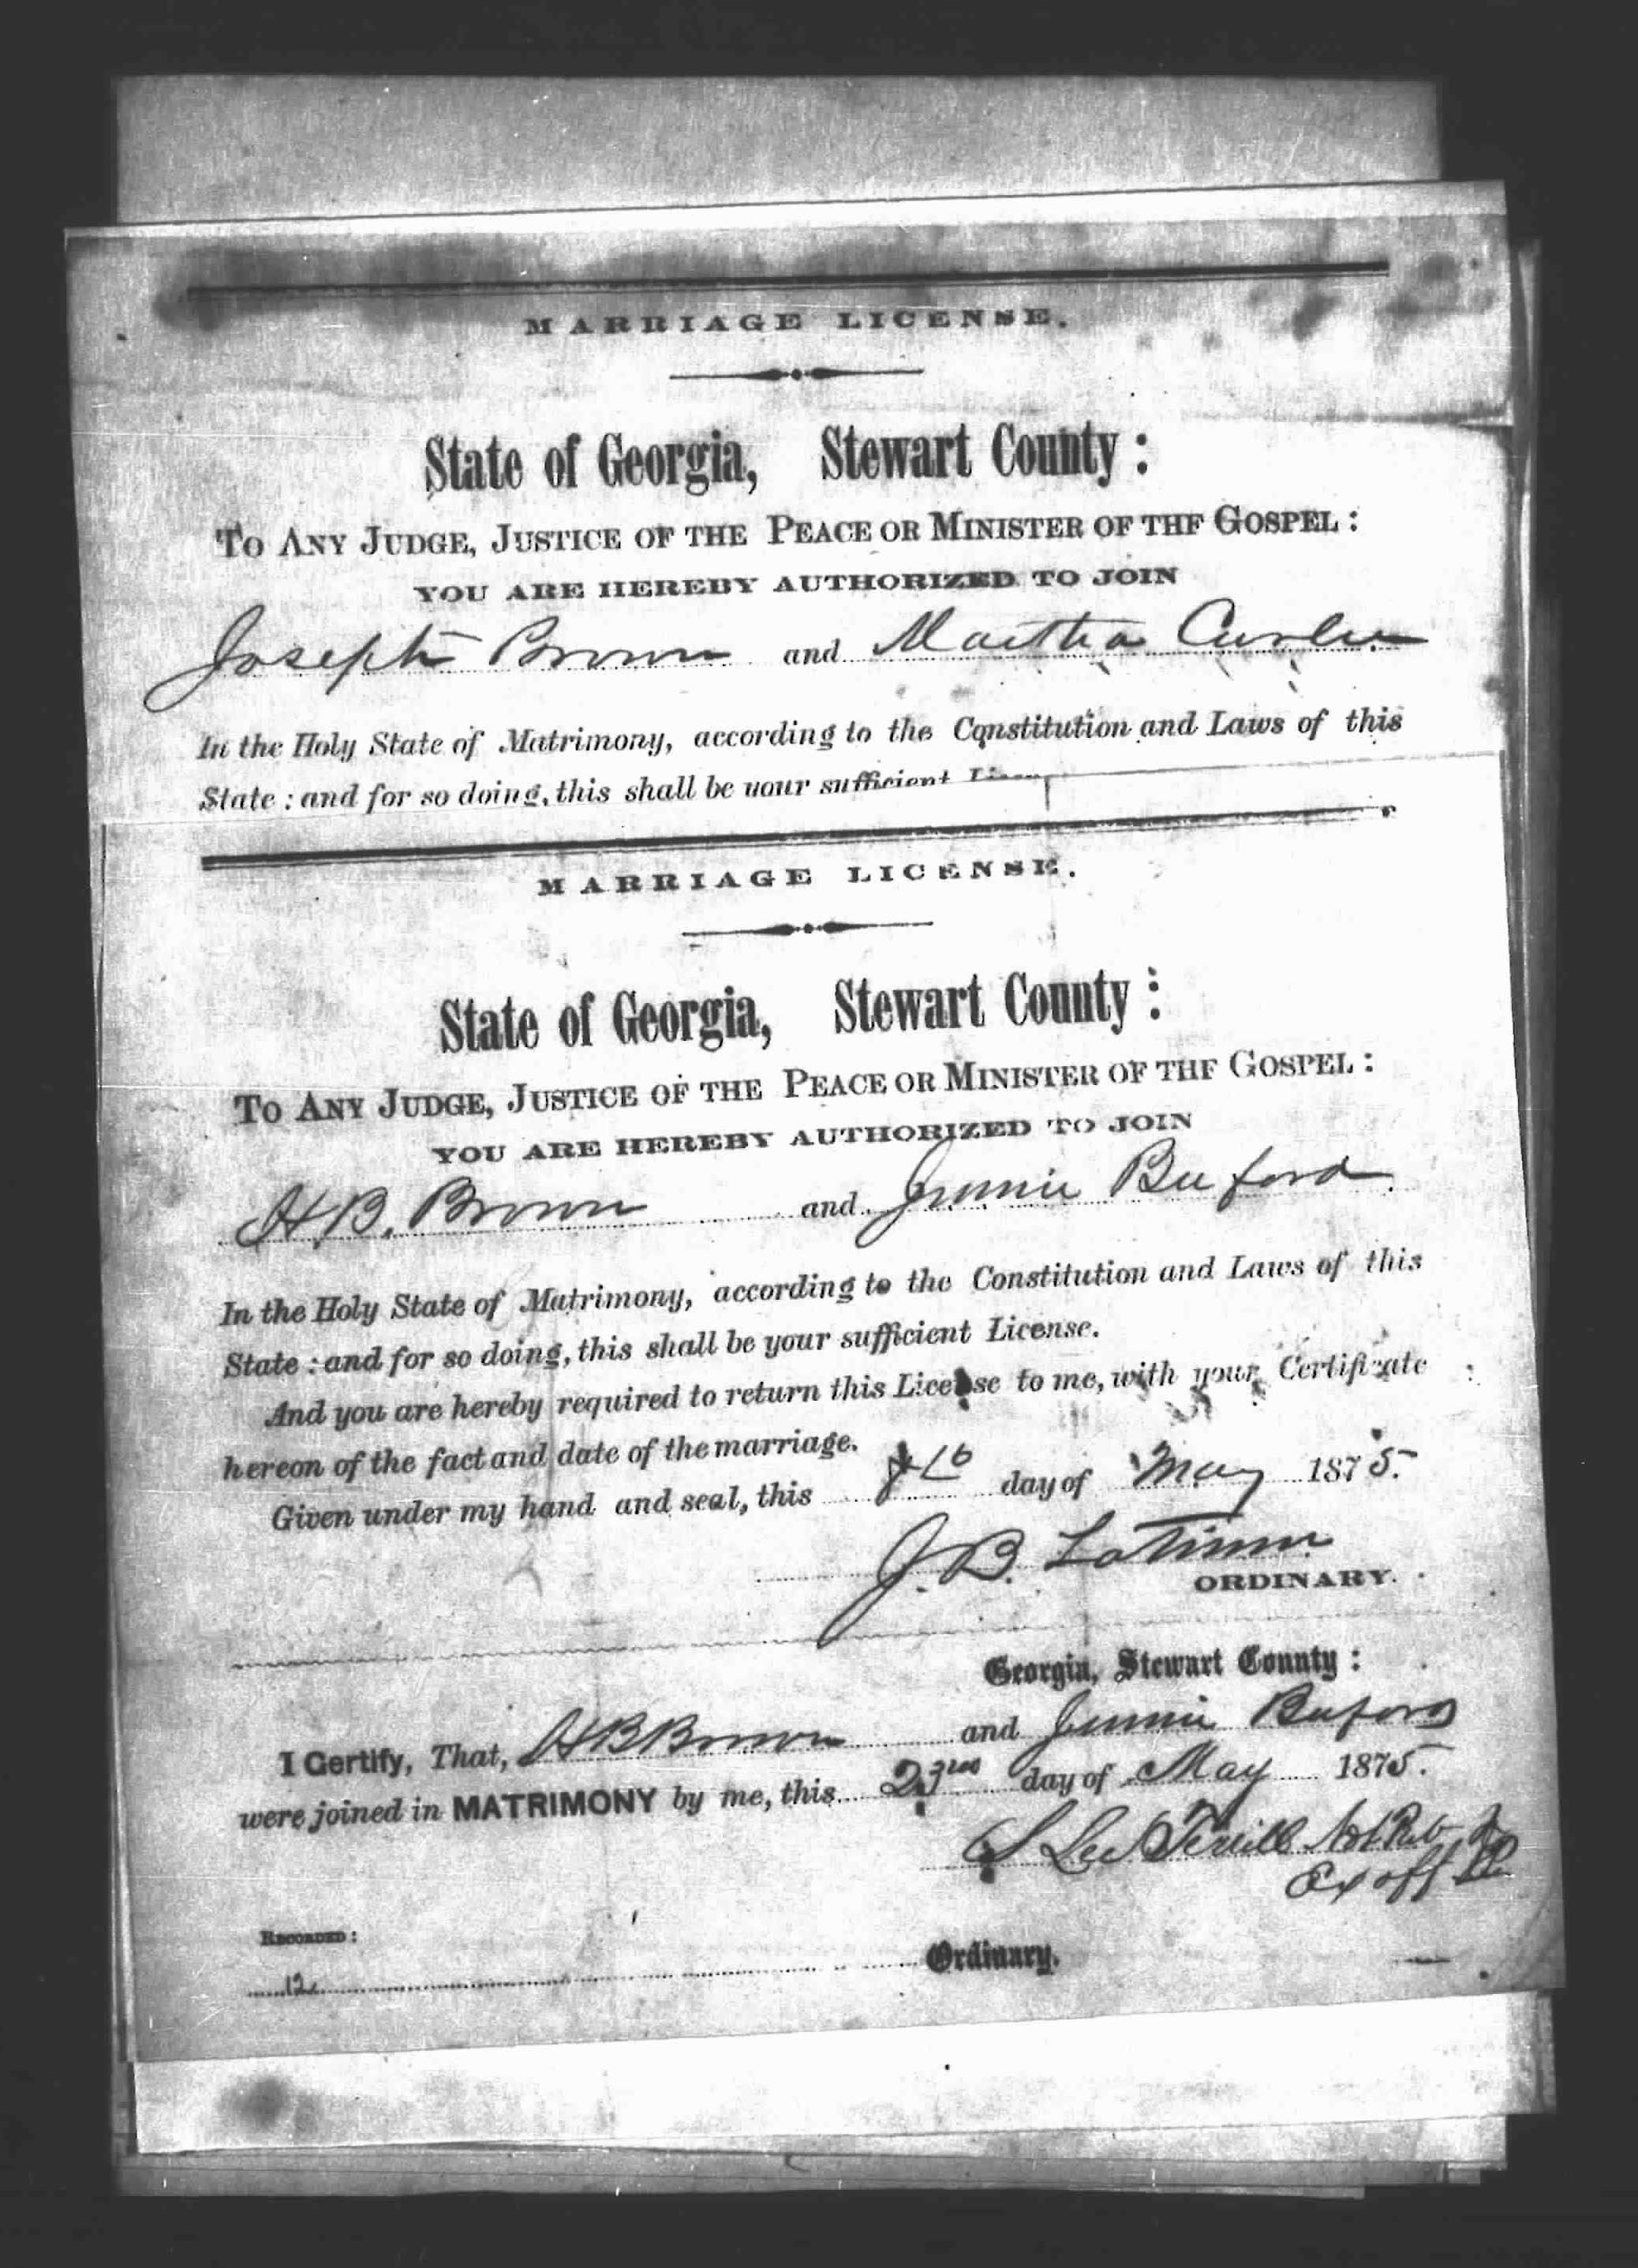 MARRIAGE LICENSE.
State of Georgia, Stewart County :
TO ANY JUDGE, JUSTICE OF THE PEACE OR MINISTER OF THF GOSPEL :
YOU ARE HEREBY AUTHORIZED TO JOIN
Joseph Brown and Martha
In the Holy State of Matrimony, according to the Constitution and Laws of this
State : and for so doing, this shall be your sufficient
MARRIAGE LICENSE.
State of Georgia, Stewart County :
TO ANY JUDGE, JUSTICE OF THE PEACE OR MINISTER OF THF GOSPEL :
YOU ARE HEREBY AUTHORIZED TO JOIN
H.B. Brown and Jennie Buford
In the Holy State of Matrimony, according to the Constitution and Laws of this
State : and for so doing, this shall be your sufficient License.
And you are hereby required to return this License to me, with your Certificate
hereon of the fact and date of the marriage.
Given under my hand and seal, this day of May 1875.
J. B. Latimer
ORDINARY.
Georgia, Stewart County :
I Certify, That, H B Brown and Jennie Buford
were joined in MATRIMONY by me, this 23rd day of May 1875.
Lee Terrill Not Pub
Ex off JP
RECORDED :
12 Ordinary.